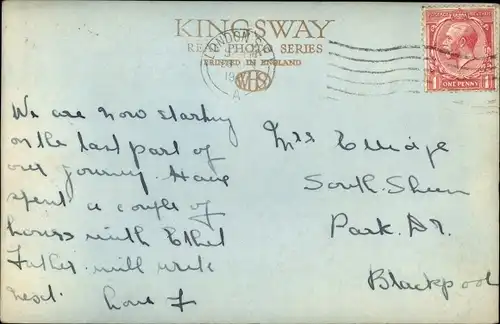 KINGSWAY
REAL PHOTO SERIES
PRINTED IN ENGLAND
LONDON
WHS
ONE PENNY
We are now starting
on the last part of
our journey. Have
spent a couple of
hours with Ethel
Father will write
next. love F
Mrs Elledge
South
Park. Dr.
Blackpool